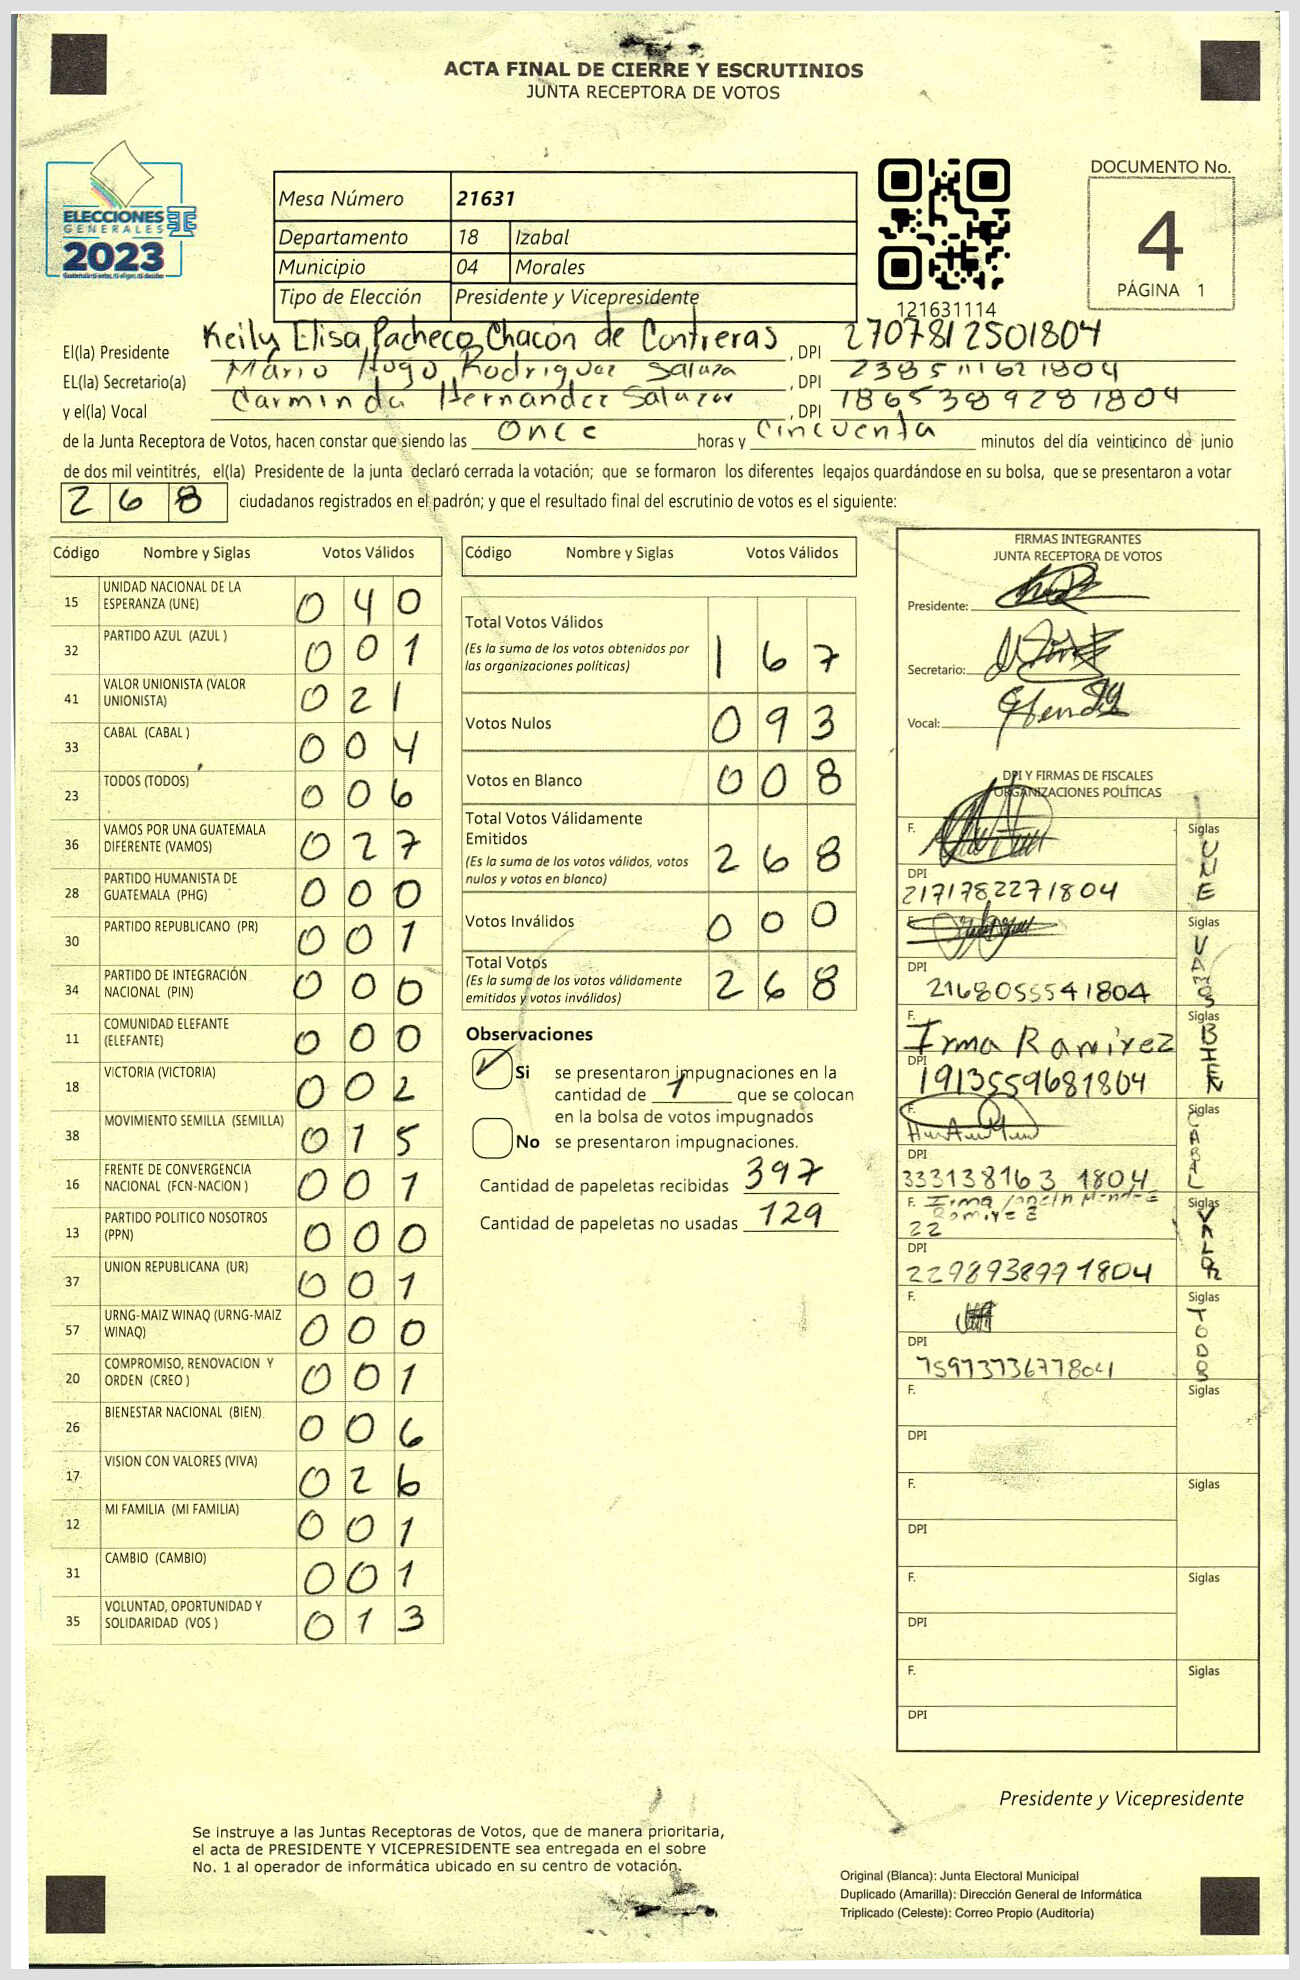 ACTA FINAL DE CIERRE Y ESCRUTINIOS
JUNTA RECEPTORA DE VOTOS
ELECCIONES
GENERALES
2023
Mesa Número 21631
Departamento 18 Izabal
Municipio 04 Morales
Tipo de Elección Presidente y Vicepresidente
121631114
DOCUMENTO No.
4
PÁGINA 1
El(la) Presidente Keily Elisa Pacheco Chacón de Contreras, DPI 2707812501804
EL(la) Secretario(a) Mario Hugo Rodriguez, DPI
y el(la) Vocal Carminda Hernandez Salazar, DPI 1865389281804
de la Junta Receptora de Votos, hacen constar que siendo las Once horas y Cincuenta minutos del día veinticinco de junio
de dos mil veintitrés, el(la) Presidente de la junta declaró cerrada la votación; que se formaron los diferentes legajos guardándose en su bolsa, que se presentaron a votar
268 ciudadanos registrados en el padrón; y que el resultado final del escrutinio de votos es el siguiente:
Código Nombre y Siglas Votos Válidos
15 UNIDAD NACIONAL DE LA ESPERANZA (UNE) 040
32 PARTIDO AZUL (AZUL ) 001
41 VALOR UNIONISTA (VALOR UNIONISTA) 021
33 CABAL (CABAL ) 004
23 TODOS (TODOS) 006
36 VAMOS POR UNA GUATEMALA DIFERENTE (VAMOS) 027
28 PARTIDO HUMANISTA DE GUATEMALA (PHG) 000
30 PARTIDO REPUBLICANO (PR) 001
34 PARTIDO DE INTEGRACIÓN NACIONAL (PIN) 000
11 COMUNIDAD ELEFANTE (ELEFANTE) 000
18 VICTORIA (VICTORIA) 002
38 MOVIMIENTO SEMILLA (SEMILLA) 015
16 FRENTE DE CONVERGENCIA NACIONAL (FCN-NACION ) 001
13 PARTIDO POLITICO NOSOTROS (PPN) 000
37 UNION REPUBLICANA (UR) 001
57 URNG-MAIZ WINAQ (URNG-MAIZ WINAQ) 000
20 COMPROMISO, RENOVACION Y ORDEN (CREO ) 001
26 BIENESTAR NACIONAL (BIEN) 006
17 VISION CON VALORES (VIVA) 026
12 MI FAMILIA (MI FAMILIA) 001
31 CAMBIO (CAMBIO) 001
35 VOLUNTAD, OPORTUNIDAD Y SOLIDARIDAD (VOS ) 013
Código Nombre y Siglas Votos Válidos
Total Votos Válidos 167
(Es la suma de los votos obtenidos por las organizaciones políticas)
Votos Nulos 093
Votos en Blanco 008
Total Votos Válidamente Emitidos 268
(Es la suma de los votos válidos, votos nulos y votos en blanco)
Votos Inválidos 000
Total Votos 268
(Es la suma de los votos válidamente emitidos y votos inválidos)
Observaciones
Si se presentaron impugnaciones en la
cantidad de 1 que se colocan
en la bolsa de votos impugnados
No se presentaron impugnaciones.
Cantidad de papeletas recibidas 397
Cantidad de papeletas no usadas 129
FIRMAS INTEGRANTES
JUNTA RECEPTORA DE VOTOS
Presidente:
Secretario:
Vocal:
DPI Y FIRMAS DE FISCALES
ORGANIZACIONES POLÍTICAS
F. Siglas UNE
DPI 2171782271804
F. Siglas VAMOS
DPI 2168055541804
F. Irma Ramirez Siglas BIEN
DPI 1913559681804
F. Siglas CABAL
DPI 333138163 1804
F. Irma Siglas VALOR
22
DPI 2298938991804
F. Siglas TODOS
DPI
F. Siglas
DPI
F. Siglas
DPI
F. Siglas
DPI
F. Siglas
DPI
Presidente y Vicepresidente
Se instruye a las Juntas Receptoras de Votos, que de manera prioritaria,
el acta de PRESIDENTE Y VICEPRESIDENTE sea entregada en el sobre
No. 1 al operador de informática ubicado en su centro de votación.
Original (Blanca): Junta Electoral Municipal
Duplicado (Amarilla): Dirección General de Informática
Triplicado (Celeste): Correo Propio (Auditoría)